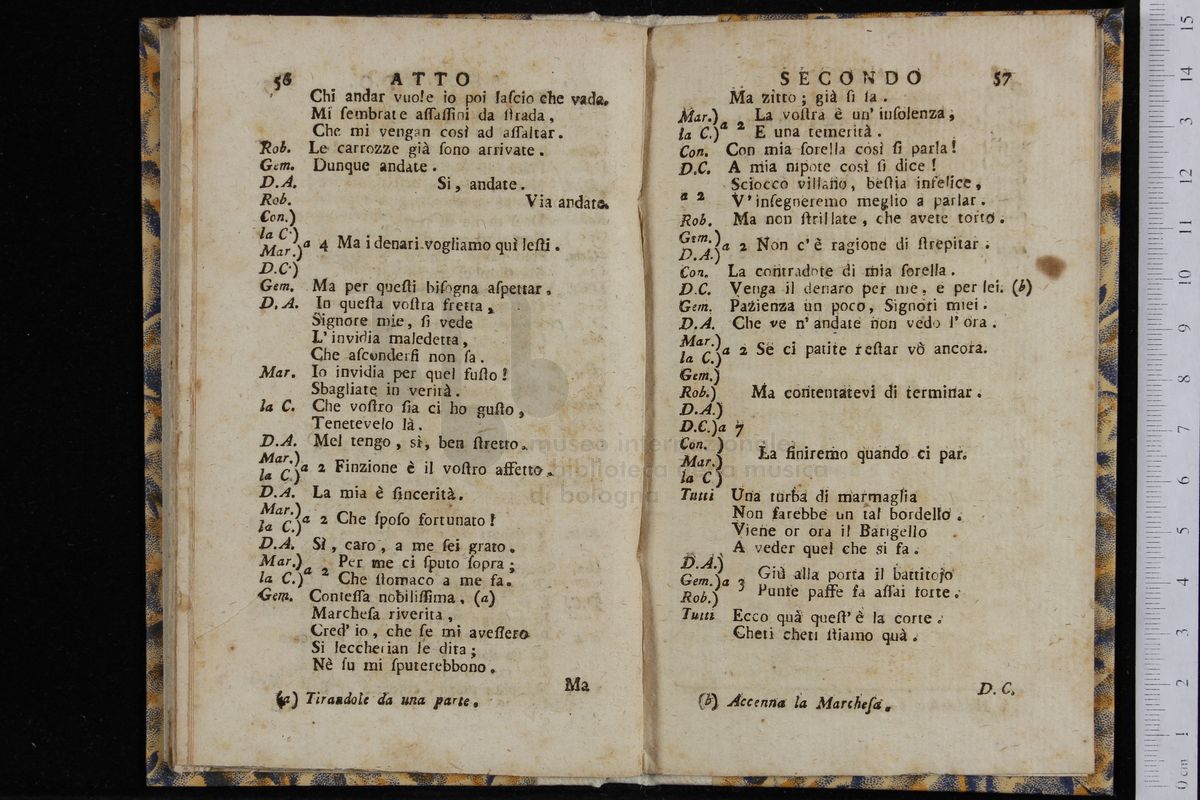 56 ATTO
Chi andar vuole io poi laſcio che vada.
Mi ſembrate aſſaſſini da ſtrada,
Che mi vengan così ad aſſaltar.
Rob. Le carrozze già ſono arrivate.
Gem. Dunque andate.
D.A. Si, andate.
Rob. Via andate.
Con.)
la C.)
Mar.) a 4 Ma i denari vogliamo quì leſti.
D.C.)
Gem. Ma per queſti biſogna aſpettar.
D.A. In queſta voſtra fretta,
Signore mie, ſi vede
L'invidia maledetta,
Che aſconderſi non ſa.
Mar. Io invidia per quel fuſto!
Sbagliate in verità.
la C. Che voſtro ſia ci ho guſto,
Tenetevelo là.
D.A. Mel tengo, sì, ben ſtretto.
Mar.)
la C.) a 2 Finzione è il voſtro affetto.
D.A. La mia è ſincerità.
Mar.)
la C.) a 2 Che ſpoſo fortunato!
D.A. Sì, caro, a me ſei grato.
Mar.) a 2 Per me ci ſputo ſopra;
la C.) Che ſtomaco a me fa.
Gem. Conteſſa nobiliſſima, (a)
Marcheſa riverita,
Cred' io, che ſe mi aveſſero
Si leccherian le dita;
Nè ſu mi ſputerebbono.
Ma
(a) Tirandole da una parte.
SECONDO 57
Ma zitto; già ſi ſa.
Mar.) a 2 La voſtra è un' inſolenza;
la C.) E una temerità.
Con. Con mia ſorella così ſi parla!
D.C. A mia nipote così ſi dice!
a 2 Sciocco villano, beſtia infelice,
V' inſegneremo meglio a parlar.
Rob. Ma non ſtrillate, che avete torto.
Gem.)
D.A.) a 2 Non c'è ragione di ſtrepitar.
Con. La contradote di mia ſorella.
D.C. Venga il denaro per me, e per lei. (b)
Gem. Pazienza un poco, Signori miei.
D.A. Che ve n' andate non vedo l' ora.
Mar.)
la C.) a 2 Se ci patite reſtar vò ancora.
Gem.)
Rob.) Ma contentatevi di terminar.
D.A.)
D.C.) a 7
Con. )
Mar.) La finiremo quando ci par.
la C )
Tutti Una turba di marmaglia
Non farebbe un tal bordello.
Viene or ora il Barigello
A veder quel che si fa.
D.A.)
Gem.) a 3 Giù alla porta il battitojo
Rob.) Punfe paffe fa aſſai forte.
Tutti Ecco quà queſt' è la corte.
Cheti cheti ſtiamo quà.
D. C.
(b) Accenna la Marcheſa.
museo internazionale
biblioteca della musica
di bologna